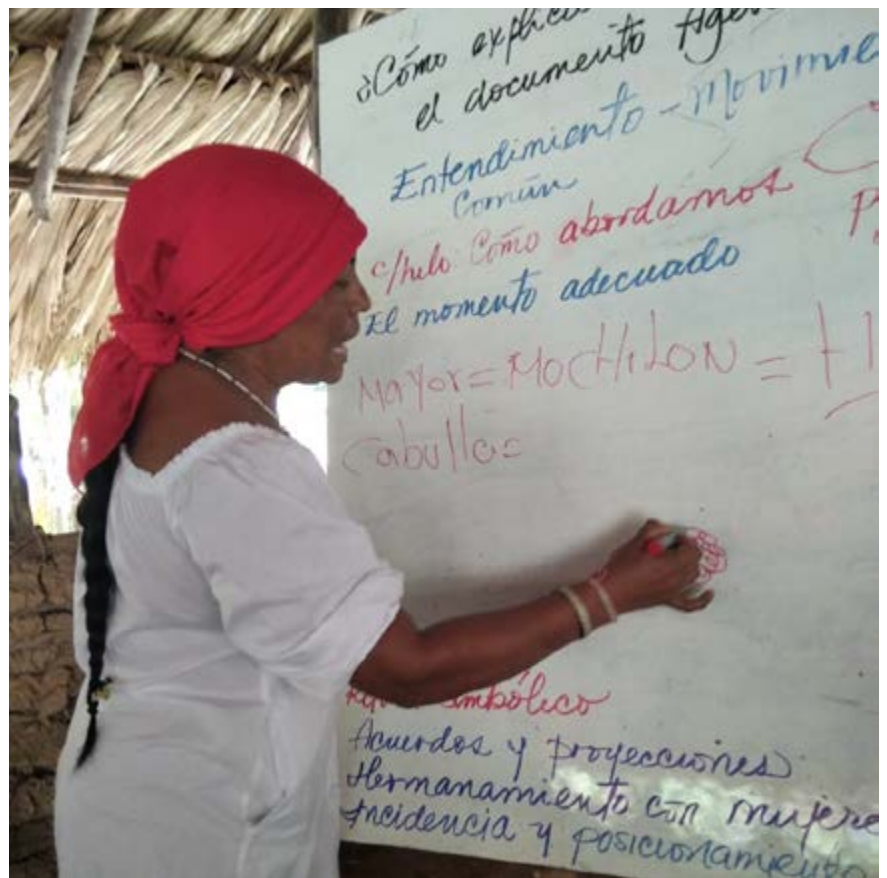 ¿Cómo explica
el documento Age
Entendimiento - Movimie
Común
c/hilo Cómo abordamos
El momento adecuado
Mayor = MOCHILON =
Cabulla=
simbólico
Acuerdos y proyecciones
Hermanamiento con mujere
Incidencia y posicionamiento